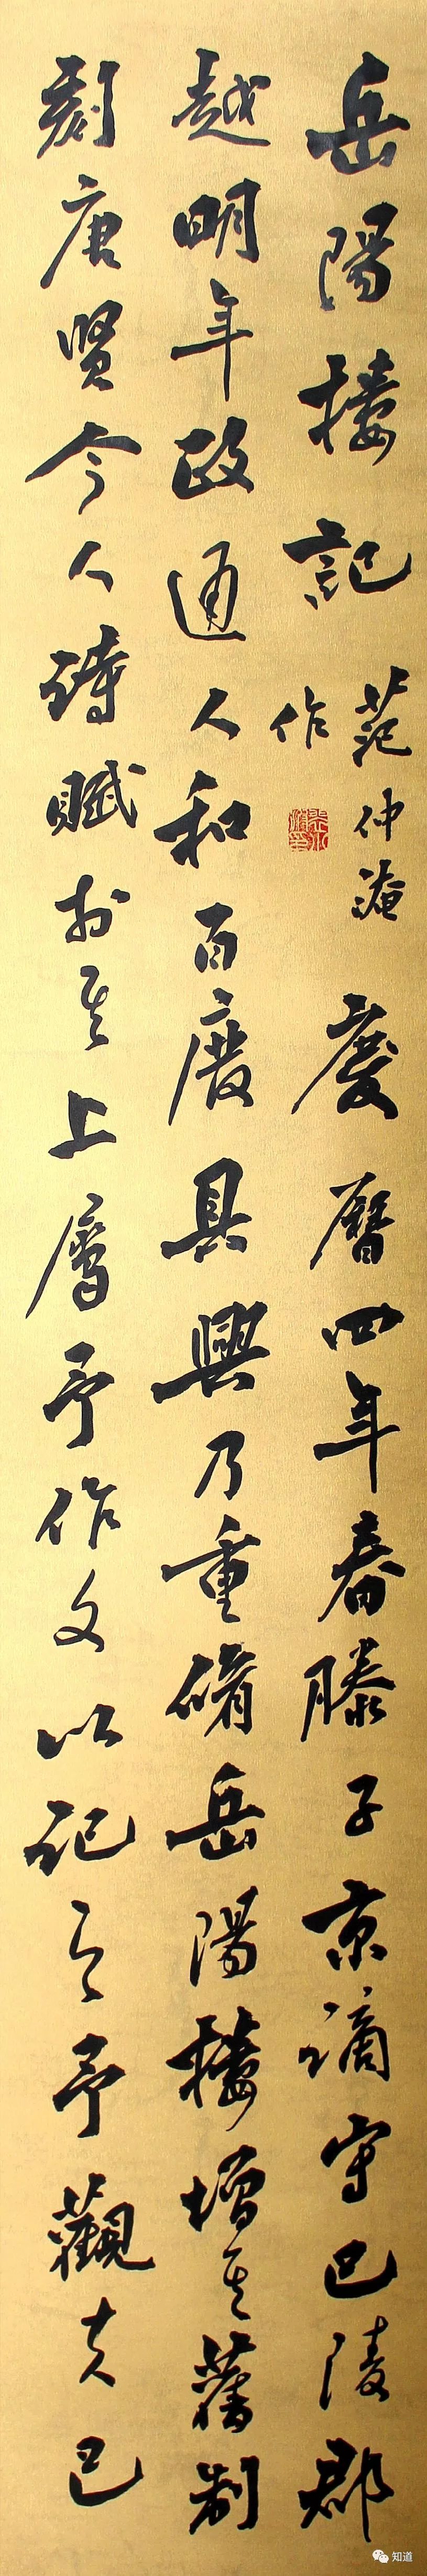 岳陽樓記
范仲淹
作
慶曆四年春滕子京謫守巴陵郡
越明年政通人和百廢具興乃重脩岳陽樓增其舊制
刻唐賢今人詩賦於其上屬予作文以記之予觀夫巴
知道